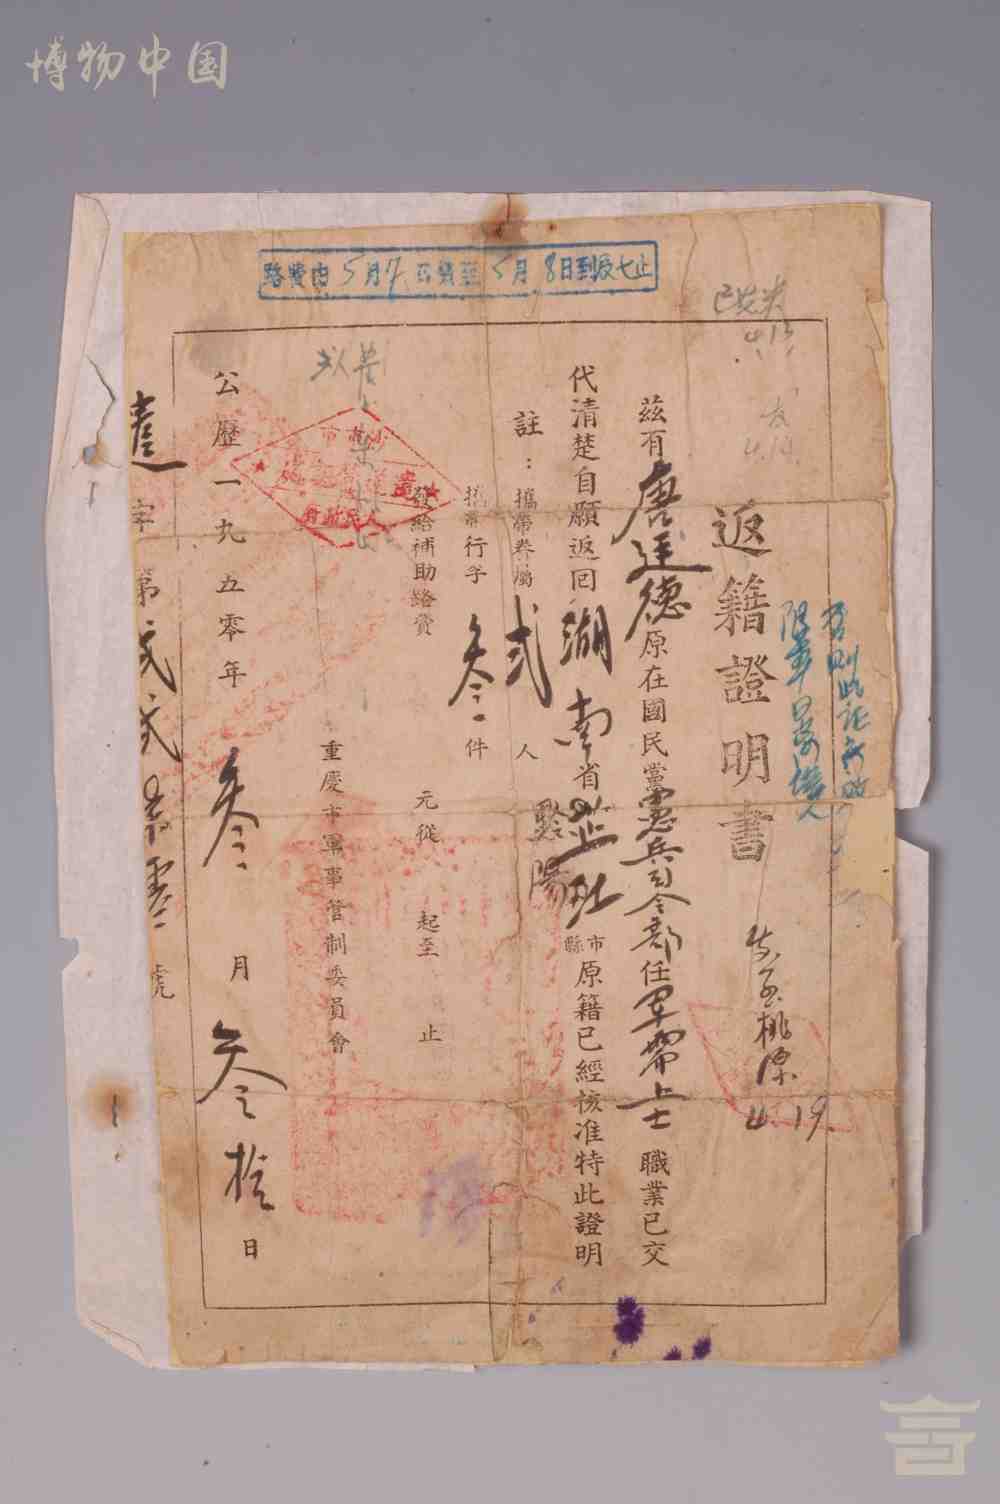 博物中国
返籍證明書
茲有唐廷德原在國民黨憲兵司令部任軍需上士職業已交
代清楚自願返回湖南省芷江市縣原籍已經核准特此證明
黔陽
註：攜帶眷屬弍人
攜帶行李叁件
發給補助路費 元從 起至 止
重慶市軍事管制委員會
公歷一九五零年叁月叁拾日
字第弍弍 零號
路費由5月7日 至5月8日到 止
人民政府
桃源
4.19
4.14